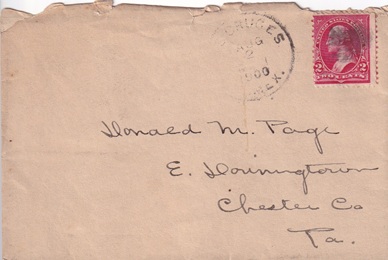 CRUCES
AUG
2
1900
MEX.
2 2
TWO CENTS
Donald M. Page
E. Downingtown
Chester Co
Pa.